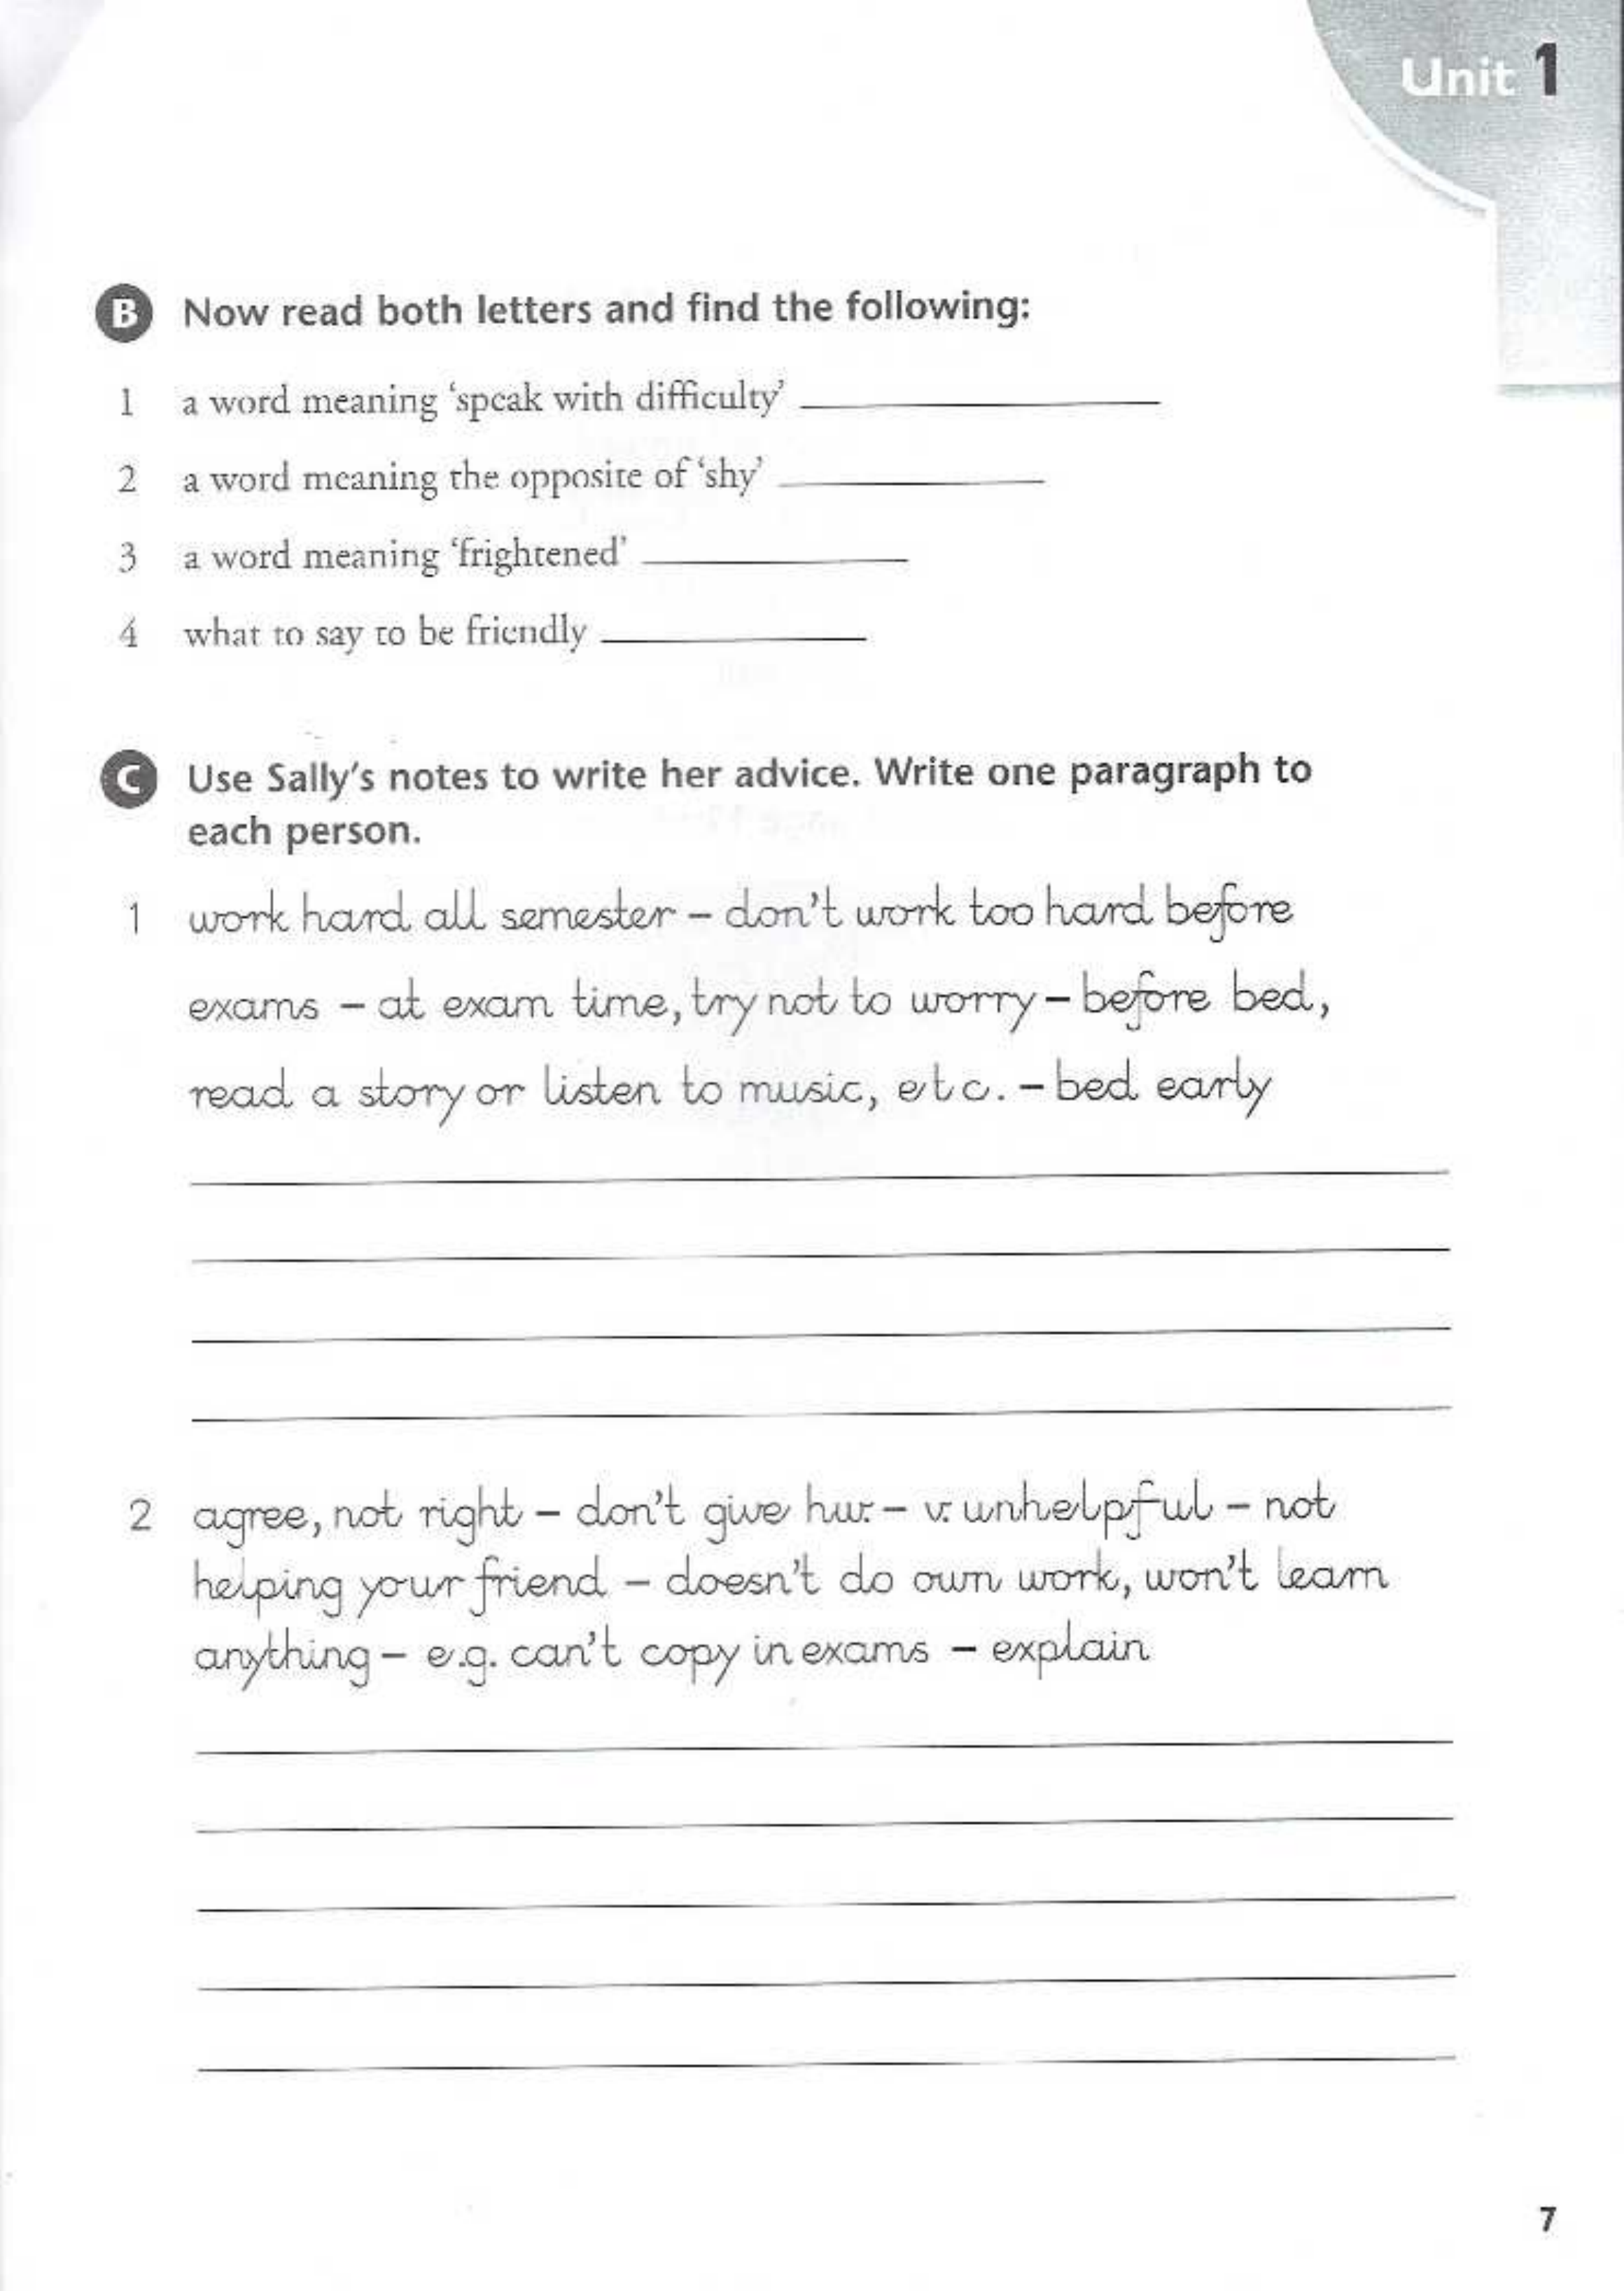 Unit 1
B Now read both letters and find the following:
1 a word meaning ‘speak with difficulty’
2 a word meaning the opposite of ‘shy’
3 a word meaning ‘frightened’
4 what to say to be friendly
C Use Sally’s notes to write her advice. Write one paragraph to
each person.
1 work hard all semester – don’t work too hard before
exams – at exam time, try not to worry – before bed,
read a story or listen to music, etc. – bed early
2 agree, not right – don’t give hw. – v. unhelpful – not
helping your friend – doesn’t do own work, won’t learn
anything – e.g. can’t copy in exams – explain
7